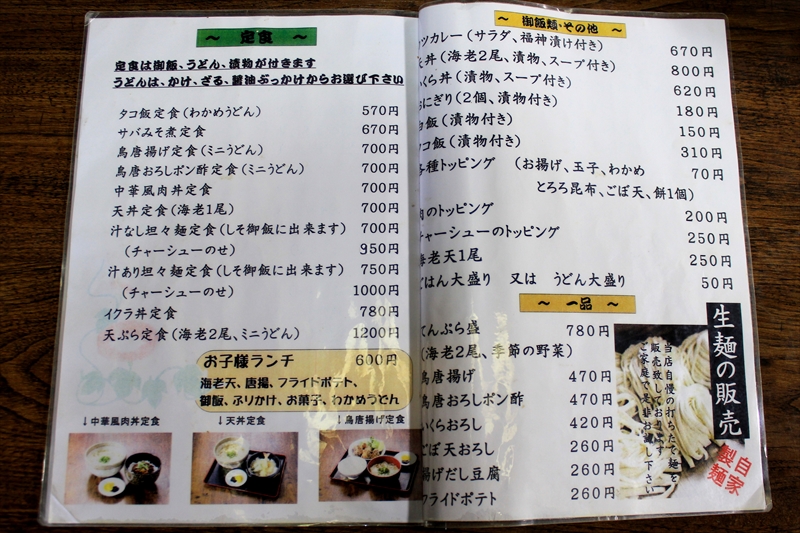 ～ 定食 ～
定食は御飯、うどん、漬物が付きます
うどんは、かけ、ざる、醤油ぶっかけからお選び下さい
タコ飯定食(わかめうどん) 570円
サバみそ煮定食 670円
鳥唐揚げ定食(ミニうどん) 700円
鳥唐おろしポン酢定食(ミニうどん) 700円
中華風肉丼定食 700円
天丼定食(海老1尾) 700円
汁なし坦々麺定食(しそ御飯に出来ます) 700円
(チャーシューのせ) 950円
汁あり坦々麺定食(しそ御飯に出来ます) 750円
(チャーシューのせ) 1000円
イクラ丼定食 780円
天ぷら定食(海老2尾、ミニうどん) 1200円
お子様ランチ 600円
海老天、唐揚、フライドポテト、
御飯、ふりかけ、お菓子、わかめうどん
↓中華風肉丼定食
↓天丼定食
↓鳥唐揚げ定食
～ 御飯類・その他 ～
ツカレー(サラダ、福神漬け付き) 670円
丼(海老2尾、漬物、スープ付き) 800円
くら丼(漬物、スープ付き) 620円
おにぎり(2個、漬物付き) 180円
白飯(漬物付き) 150円
タコ飯(漬物付き) 310円
各種トッピング (お揚げ、玉子、わかめ 70円
とろろ昆布、ごぼ天、餅1個)
肉のトッピング 200円
チャーシューのトッピング 250円
海老天1尾 250円
ごはん大盛り 又は うどん大盛り 50円
～ 一品 ～
てんぷら盛 780円
(海老2尾、季節の野菜)
鳥唐揚げ 470円
鳥唐おろしポン酢 470円
いくらおろし 420円
ごぼ天おろし 260円
揚げだし豆腐 260円
フライドポテト 260円
生麺の販売
当店自慢の打ちたて麺を
販売致しております
ご家庭で是非お試し下さい
自家
製麺